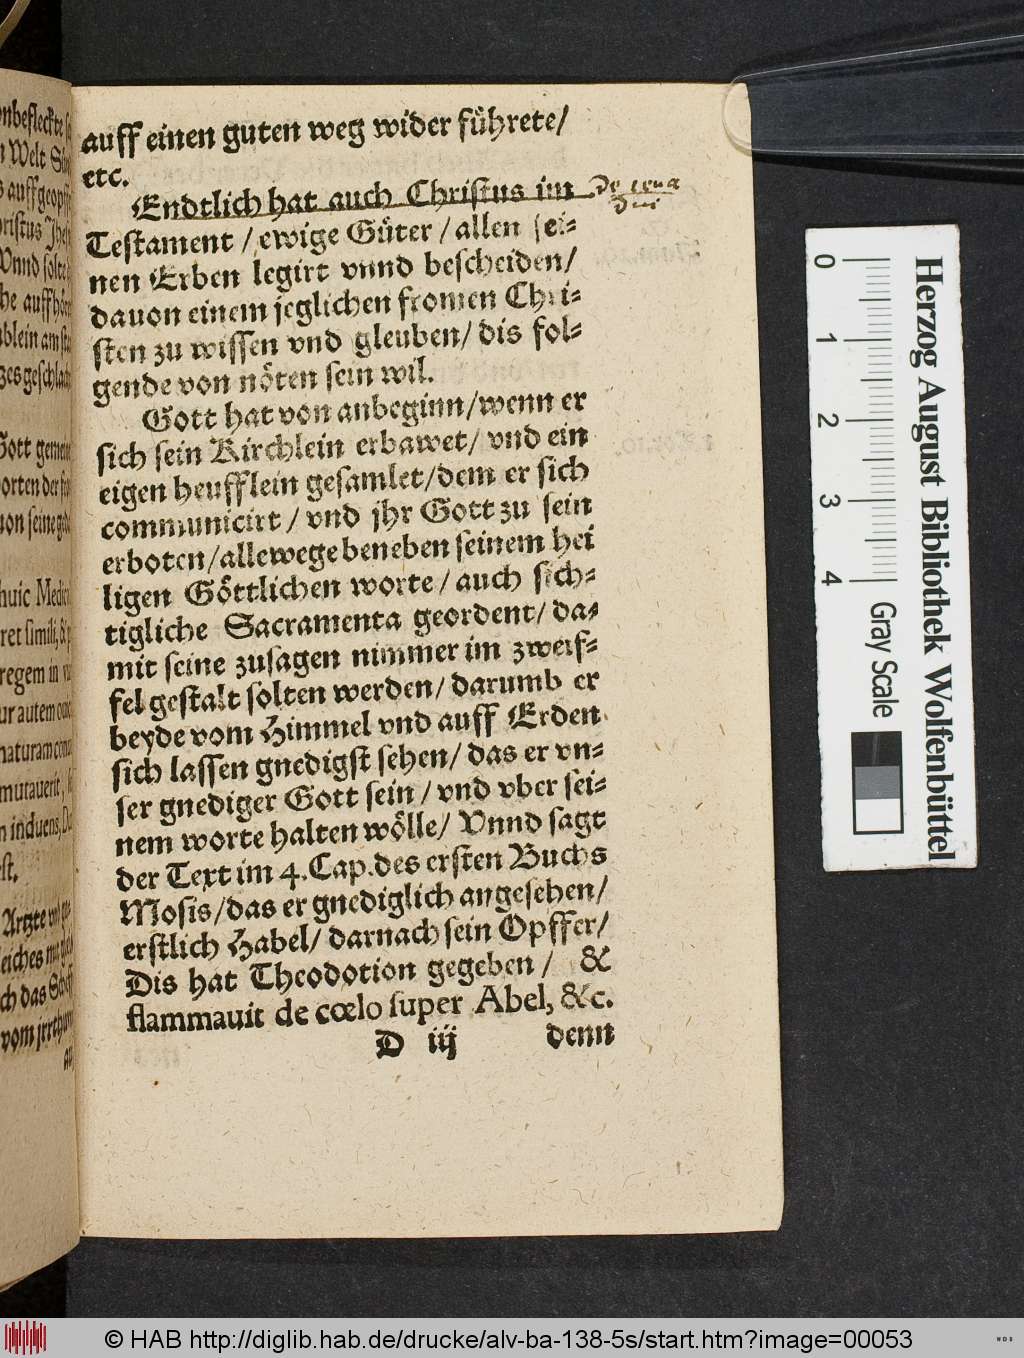 auff einen guten weg wider führete/
etc.
Endtlich hat auch Christus im
Testament / ewige Güter / allen sei-
nen Erben legirt vnnd bescheiden/
dauon einem jeglichen fromen Chri-
sten zu wissen vnd gleuben/ dis fol-
gende von nöten sein wil.
Gott hat von anbeginn/wenn er
sich sein Kirchlein erbawet/ vnd ein
eigen heufflein gesamlet/dem er sich
communicirt / vnd jhr Gott zu sein
erboten/allewege beneben seinem hei
ligen Göttlichen worte/ auch sich-
tigliche Sacramenta geordent/ da-
mit seine zusagen nimmer im zweif-
fel gestalt solten werden/ darumb er
beyde vom Himmel vnd auff Erden
sich lassen gnedigst sehen/ das er vn-
ser gnediger Gott sein / vnd vber sei-
nem worte halten wölle/ Vnnd sagt
der Text im 4. Cap. des ersten Buchs
Mosis/das er gnediglich angesehen/
erstlich Habel/ darnach sein Opffer/
Dis hat Theodotion gegeben / &
flammauit de cœlo super Abel, &c.
D iij denn
De cena
Dni
huic Medi
ret simili, &
regem in
ur autem
naturam
mutauerit,
n induens,
est.
Artzte
ch das
vom jrrthum
0 1 2 3 4
Herzog August Bibliothek Wolfenbüttel
Gray Scale
© HAB http://diglib.hab.de/drucke/alv-ba-138-5s/start.htm?image=00053